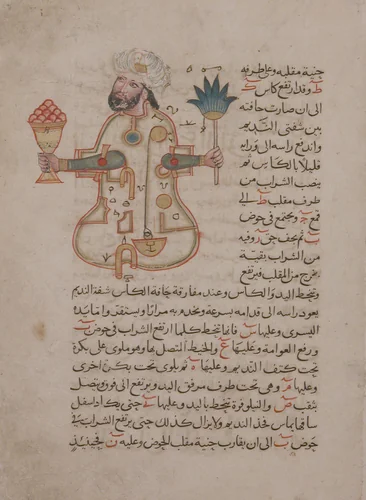 جنبة مقلبه وعلى طرفه
ط وقد ارتفع كاس ك
الى ان صارت حافته
بين شفتي النديم
واندفع راسه الى ورائه
قليلا بالكاس ثم
يصب الشراب من
طرف مقلب ط الى
قمع ويجتمع في حوض
ثم يجف حق روفيه
من الشراب بقية
يخرج من المقلب فيرتفع
وتنحط اليد والكاس وعند مفارقة حافة الكاس شفة النديم
يعود راسه الى قدامه بسرعة ويتحدم به مرارا ويستقر واما يده
اليسرى وعليها س فانما تنحط كلما ارتفع الشراب في حوض ب
ورفع العوامة وعليها ع والخيط المتصل بها وهو ملوي على بكرة
تحت كتف النديم وعليها ه ثم يلوى تحت بكرة اخرى
وعليها م وهي تحت طرف مرفق اليد ويرتفع الى فوق ويتصل
بثقب ص والنيلوفرة تنحط باليد وعليها حتى يكاد اسفل
ساقها يماس فخذ النديم ولا يزال كذلك حتى يرتفع الشراب في
حوض ب الى ان يقارب جنبة مقلب الحوض وعليه ن فحينئذ